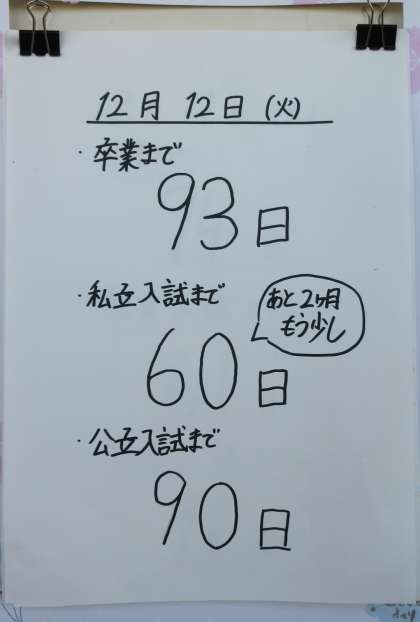 12月 12日 (火)
・卒業まで
93日
・私立入試まで
あと2ヶ月
もう少し
60日
・公立入試まで
90日